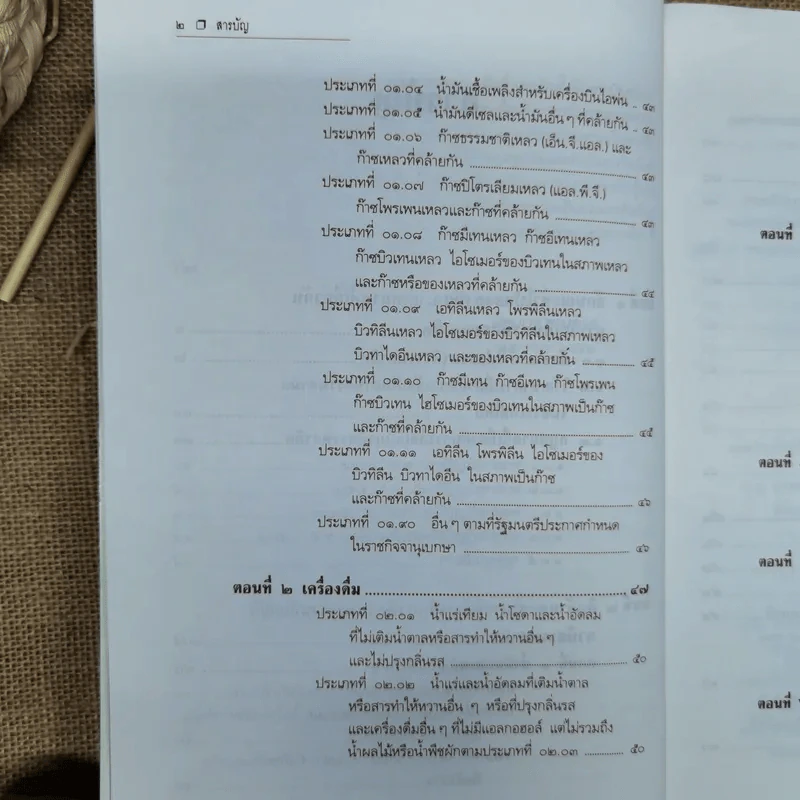 ๒ ❒ สารบัญ
ประเภทที่ ๐๑.๐๔ น้ำมันเชื้อเพลิงสำหรับเครื่องบินไอพ่น .. ๔๓
ประเภทที่ ๐๑.๐๕ น้ำมันดีเซลและน้ำมันอื่น ๆ ที่คล้ายกัน .. ๔๓
ประเภทที่ ๐๑.๐๖ ก๊าซธรรมชาติเหลว (เอ็น.จี.แอล.) และ
ก๊าซเหลวที่คล้ายกัน ........ ๔๓
ประเภทที่ ๐๑.๐๗ ก๊าซปิโตรเลียมเหลว (แอล.พี.จี.)
ก๊าซโพรเพนเหลวและก๊าซที่คล้ายกัน ........ ๔๓
ประเภทที่ ๐๑.๐๘ ก๊าซมีเทนเหลว ก๊าซอีเทนเหลว
ก๊าซบิวเทนเหลว ไอโซเมอร์ของบิวเทนในสภาพเหลว
และก๊าซหรือของเหลวที่คล้ายกัน ........ ๔๔
ประเภทที่ ๐๑.๐๙ เอทิลีนเหลว โพรพิลีนเหลว
บิวทิลีนเหลว ไอโซเมอร์ของบิวทิลีนในสภาพเหลว
บิวทาไดอีนเหลว และของเหลวที่คล้ายกั้น ........ ๔๕
ประเภทที่ ๐๑.๑๐ ก๊าซมีเทน ก๊าซอีเทน ก๊าซโพรเพน
ก๊าซบิวเทน ไฮโซเมอร์ของบิวเทนในสภาพเป็นก๊าซ
และก๊าซที่คล้ายกัน ........ ๔๕
ประเภทที่ ๐๑.๑๑ เอทิลีน โพรพิลีน ไอโซเมอร์ของ
บิวทิลีน บิวทาไดอีน ในสภาพเป็นก๊าซ
และก๊าซที่คล้ายกัน ........ ๔๖
ประเภทที่ ๐๑.๙๐ อื่น ๆ ตามที่รัฐมนตรีประกาศกำหนด
ในราชกิจจานุเบกษา ........ ๔๖
ตอนที่ ๒ เครื่องดื่ม ........ ๔๗
ประเภทที่ ๐๒.๐๑ น้ำแร่เทียม น้ำโซดาและน้ำอัดลม
ที่ไม่เติมน้ำตาลหรือสารทำให้หวานอื่น ๆ
และไม่ปรุงกลิ่นรส ........ ๕๐
ประเภทที่ ๐๒.๐๒ น้ำแร่และน้ำอัดลมที่เติมน้ำตาล
หรือสารทำให้หวานอื่น ๆ หรือที่ปรุงกลิ่นรส
และเครื่องดื่มอื่น ๆ ที่ไม่มีแอลกอฮอล์ แต่ไม่รวมถึง
น้ำผลไม้หรือน้ำพืชผักตามประเภทที่ ๐๒.๐๓ ........ ๕๐
ตอนที่
ตอนที่
ตอนที่
ตอนที่